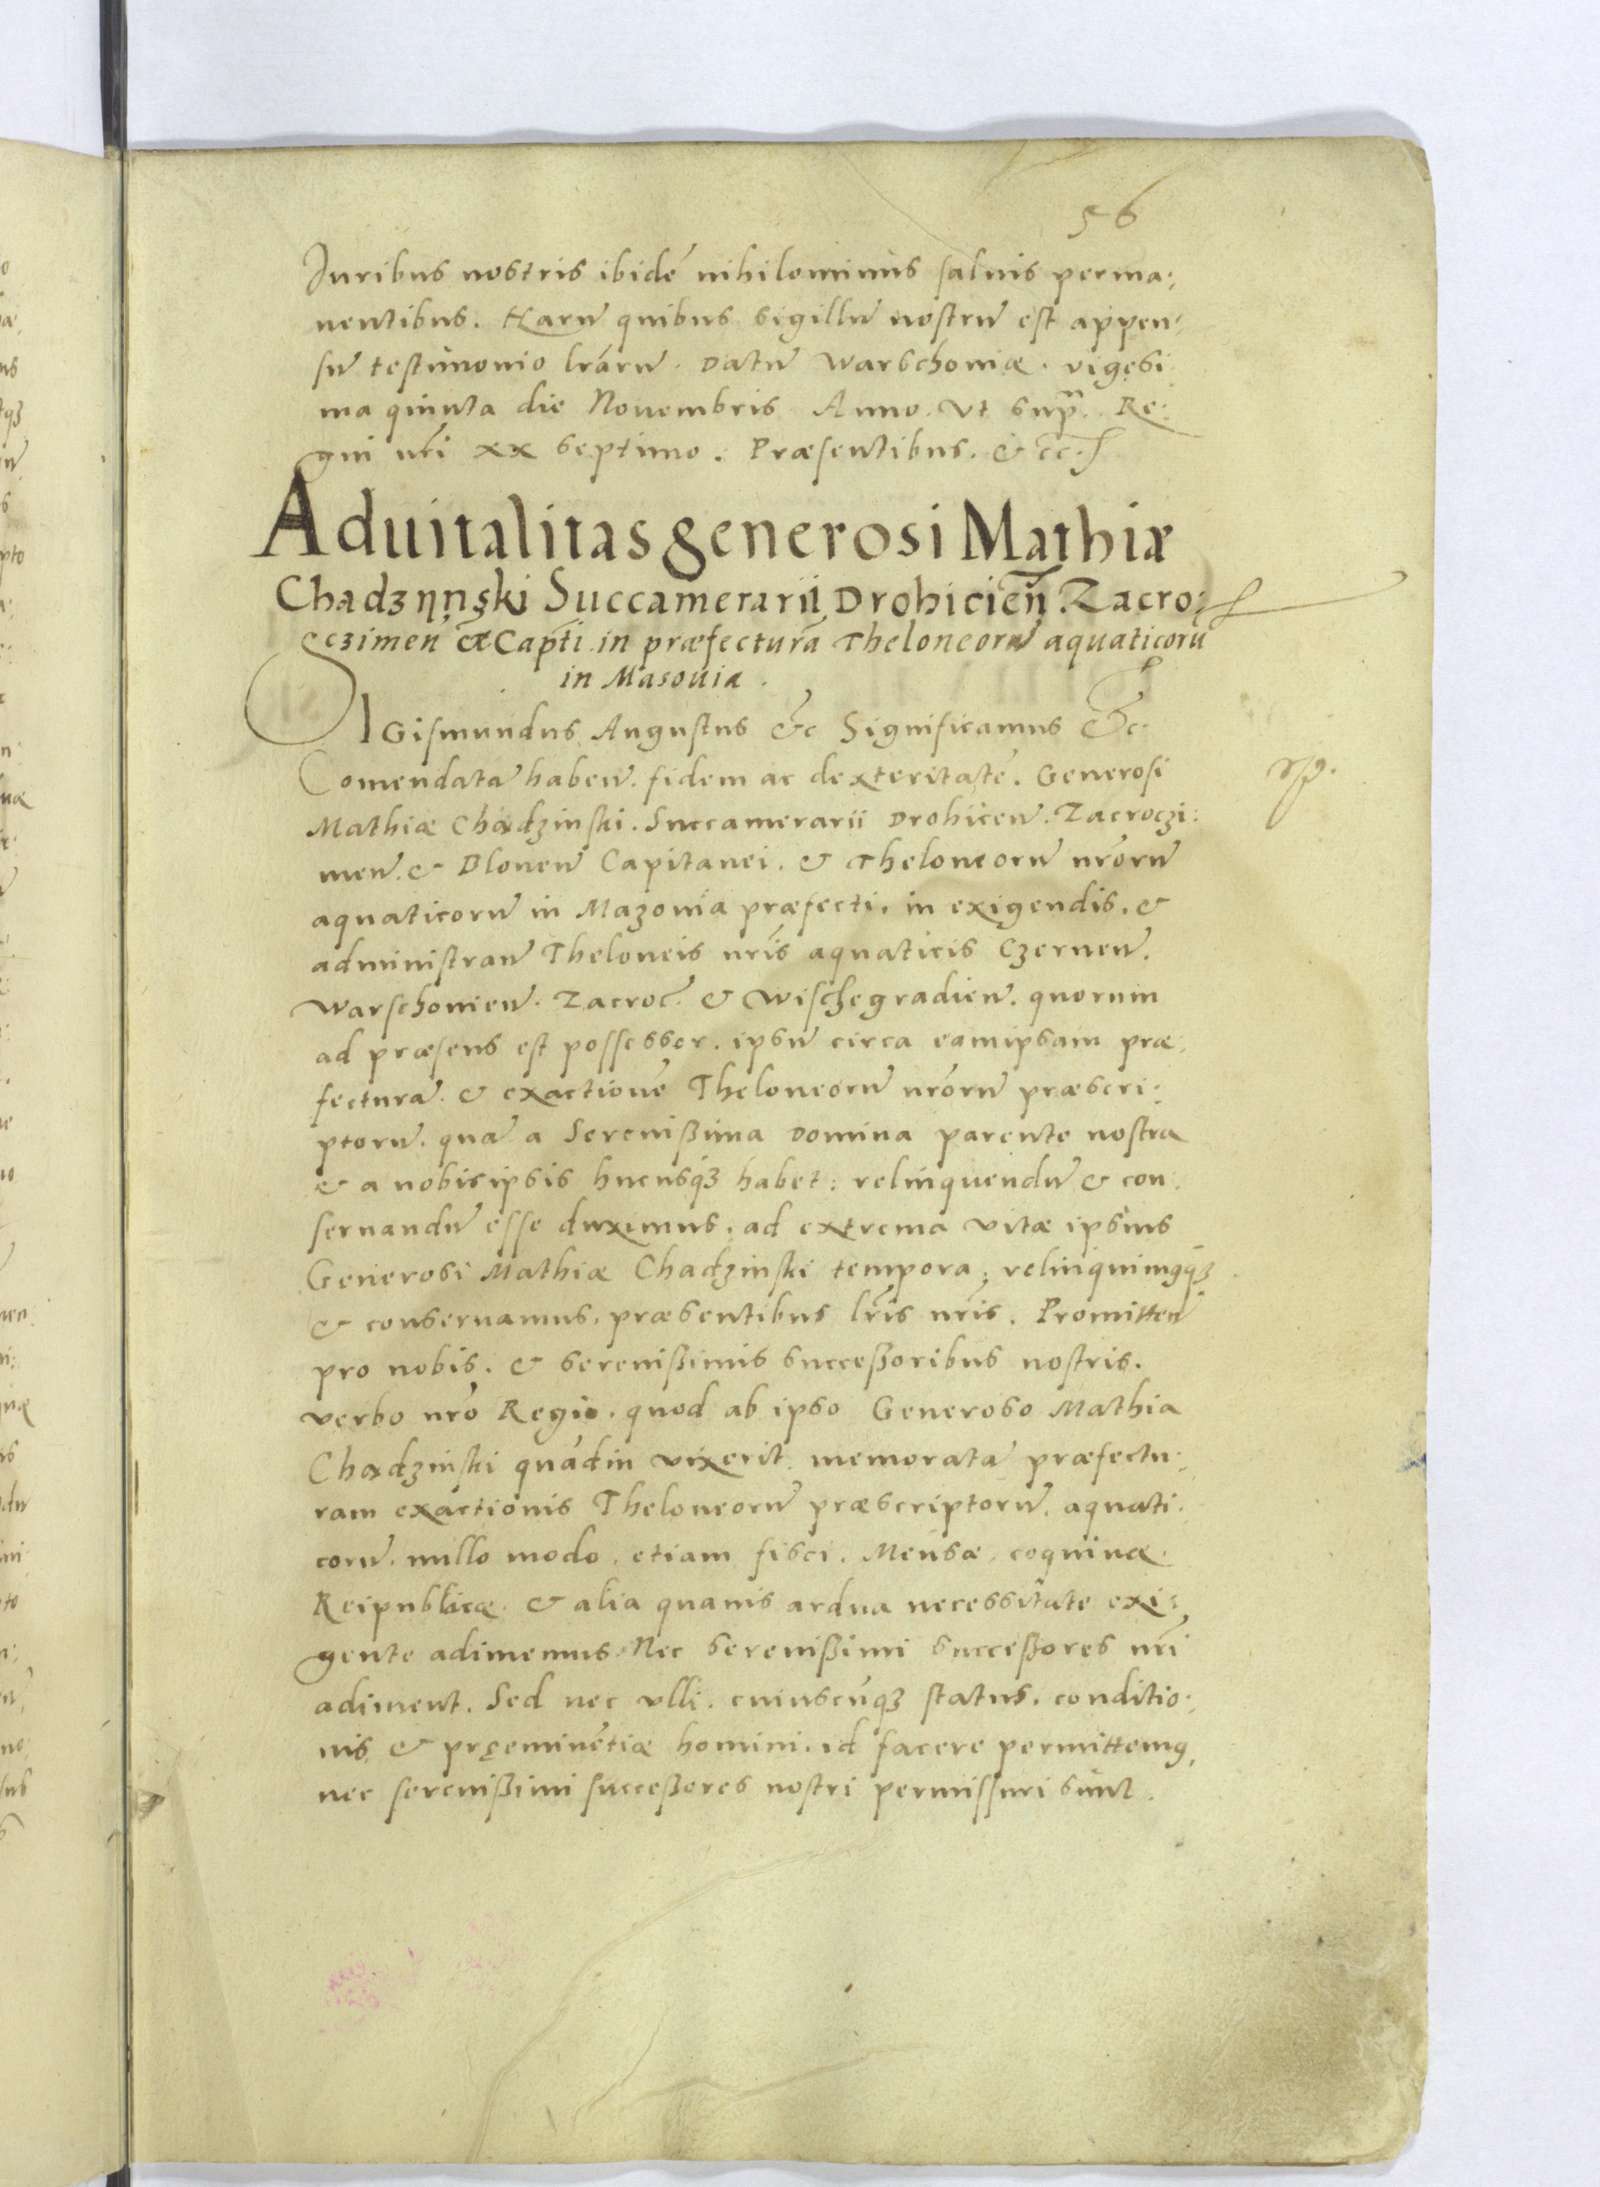 56
Iuribus nostris ibidē nihilominus saluis perma:
nentibus. Harū quibus sigillū nostrū est appen:
sū testimonio lrārū. Datū Warschouiæ. vigesi
ma quinta die Nouembris Anno. vt supra. Re:
gni nri xx septimo. Præsentibus. &cc.
Aduitalitas generosi Mathiæ
Chadzÿnski Succamerarii Drohicień. Zacro:
czimen̄ & Capti in præfecturā Theloneorū aquaticorū
in Masouia.
SIGismundus Augustus &c Significamus &c.
Comendatā haben̄. fidem ac dexteritatē. Generosi
Mathiæ Chadzinski. Succamerarii Drohicen̄. Zacroczi:
men̄. & Blonen̄ Capitanei. & Theloneorū nrōrū
aquaticorū in Mazouia præfecti. in exigendis. &
administran̄ Theloneis nris aquaticis Czernen̄.
Warschouien̄. Zacroc. & Wischegradien̄. quorum
ad præsens est possessor. ipsū circa eamipsam præ:
fecturā. & exactionē Theloneorū nrōrū præscri:
ptorū. quā a Serenißima Domina parente nostra
& a nobisipsis hucusqз habet: relinquendū & con:
seruandū esse duximus. ad extrema vitæ ipsius
Generosi Mathiæ Chadzinski tempora; relinquimqqз
& conseruamus. præsentibus lris nris. Promitten̄
pro nobis. & serenißimis succeßoribus nostris.
verbo nrō Regio. quod ab ipso Generoso Mathia
Chadzinski quādiu vixerit. memoratā præfectu:
ram exactionis Theloneorū præscriptorū. aquati:
corū. nullo modo. etiam fisci. Mensæ. coquinæ.
Reipublicæ. & alia quauis ardua necessitate exi:
gente adimemus. Nec serenißimi succeßores nri
adiment. Sed nec vlli. cuiuscūqз status. conditio:
nis & pręeminētiæ homini. id facere permittemq,
nec serenißimi succeßores nostri permissuri sunt.